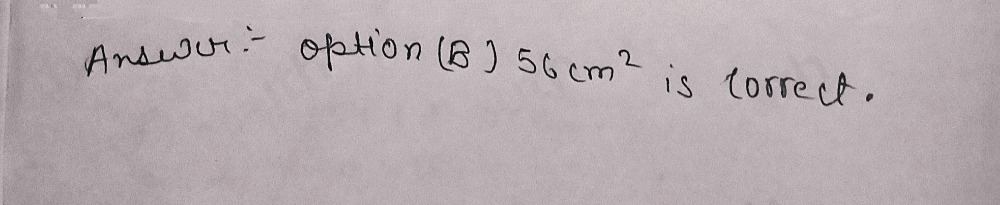 Answer:- option (B) 56 cm² is correct.